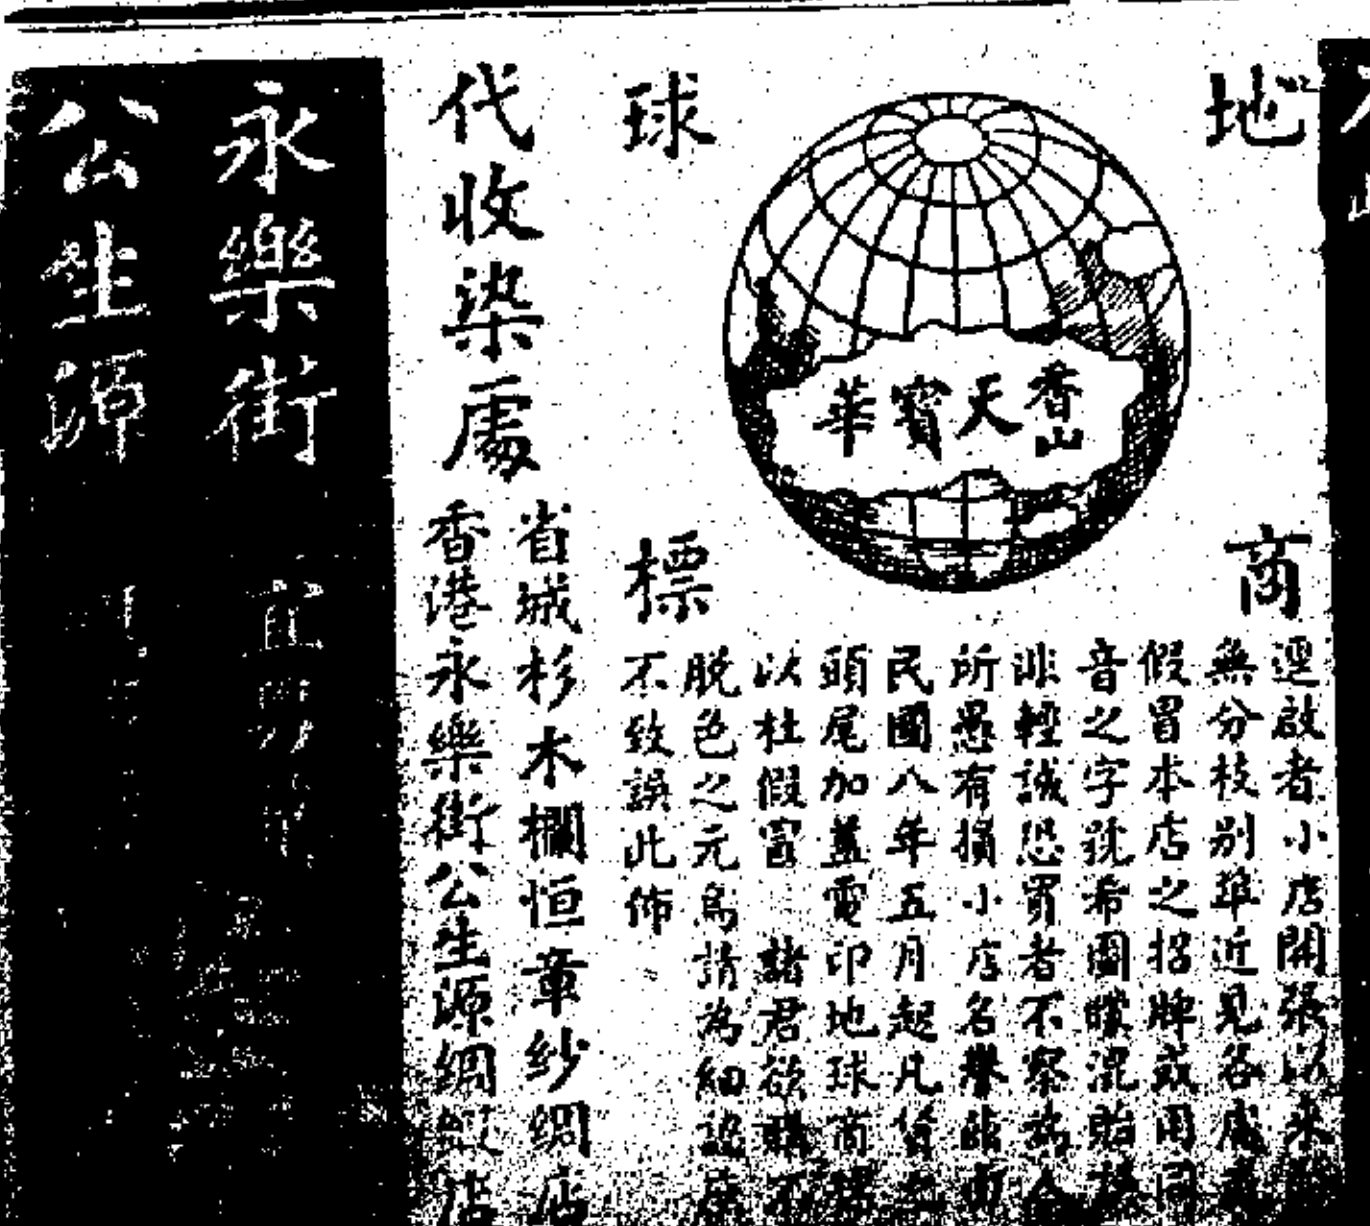 地球
商標
香山天寶華
逕啟者小店開張以來
無分枝別埠近見各處
假冒本店之招牌或用同
音之字號希圖矇混貽
非輕誠恐買者不察為
所愚有損小店名譽茲由
民國八年五月起凡貨
頭尾加蓋電印地球商標
以杜假冒 諸君欲購不
脫色之元烏請為細認庶
不致誤此佈
代收染處
省城杉木欄恒章紗綢店
香港永樂街公生源綢緞店
永樂街
公生源